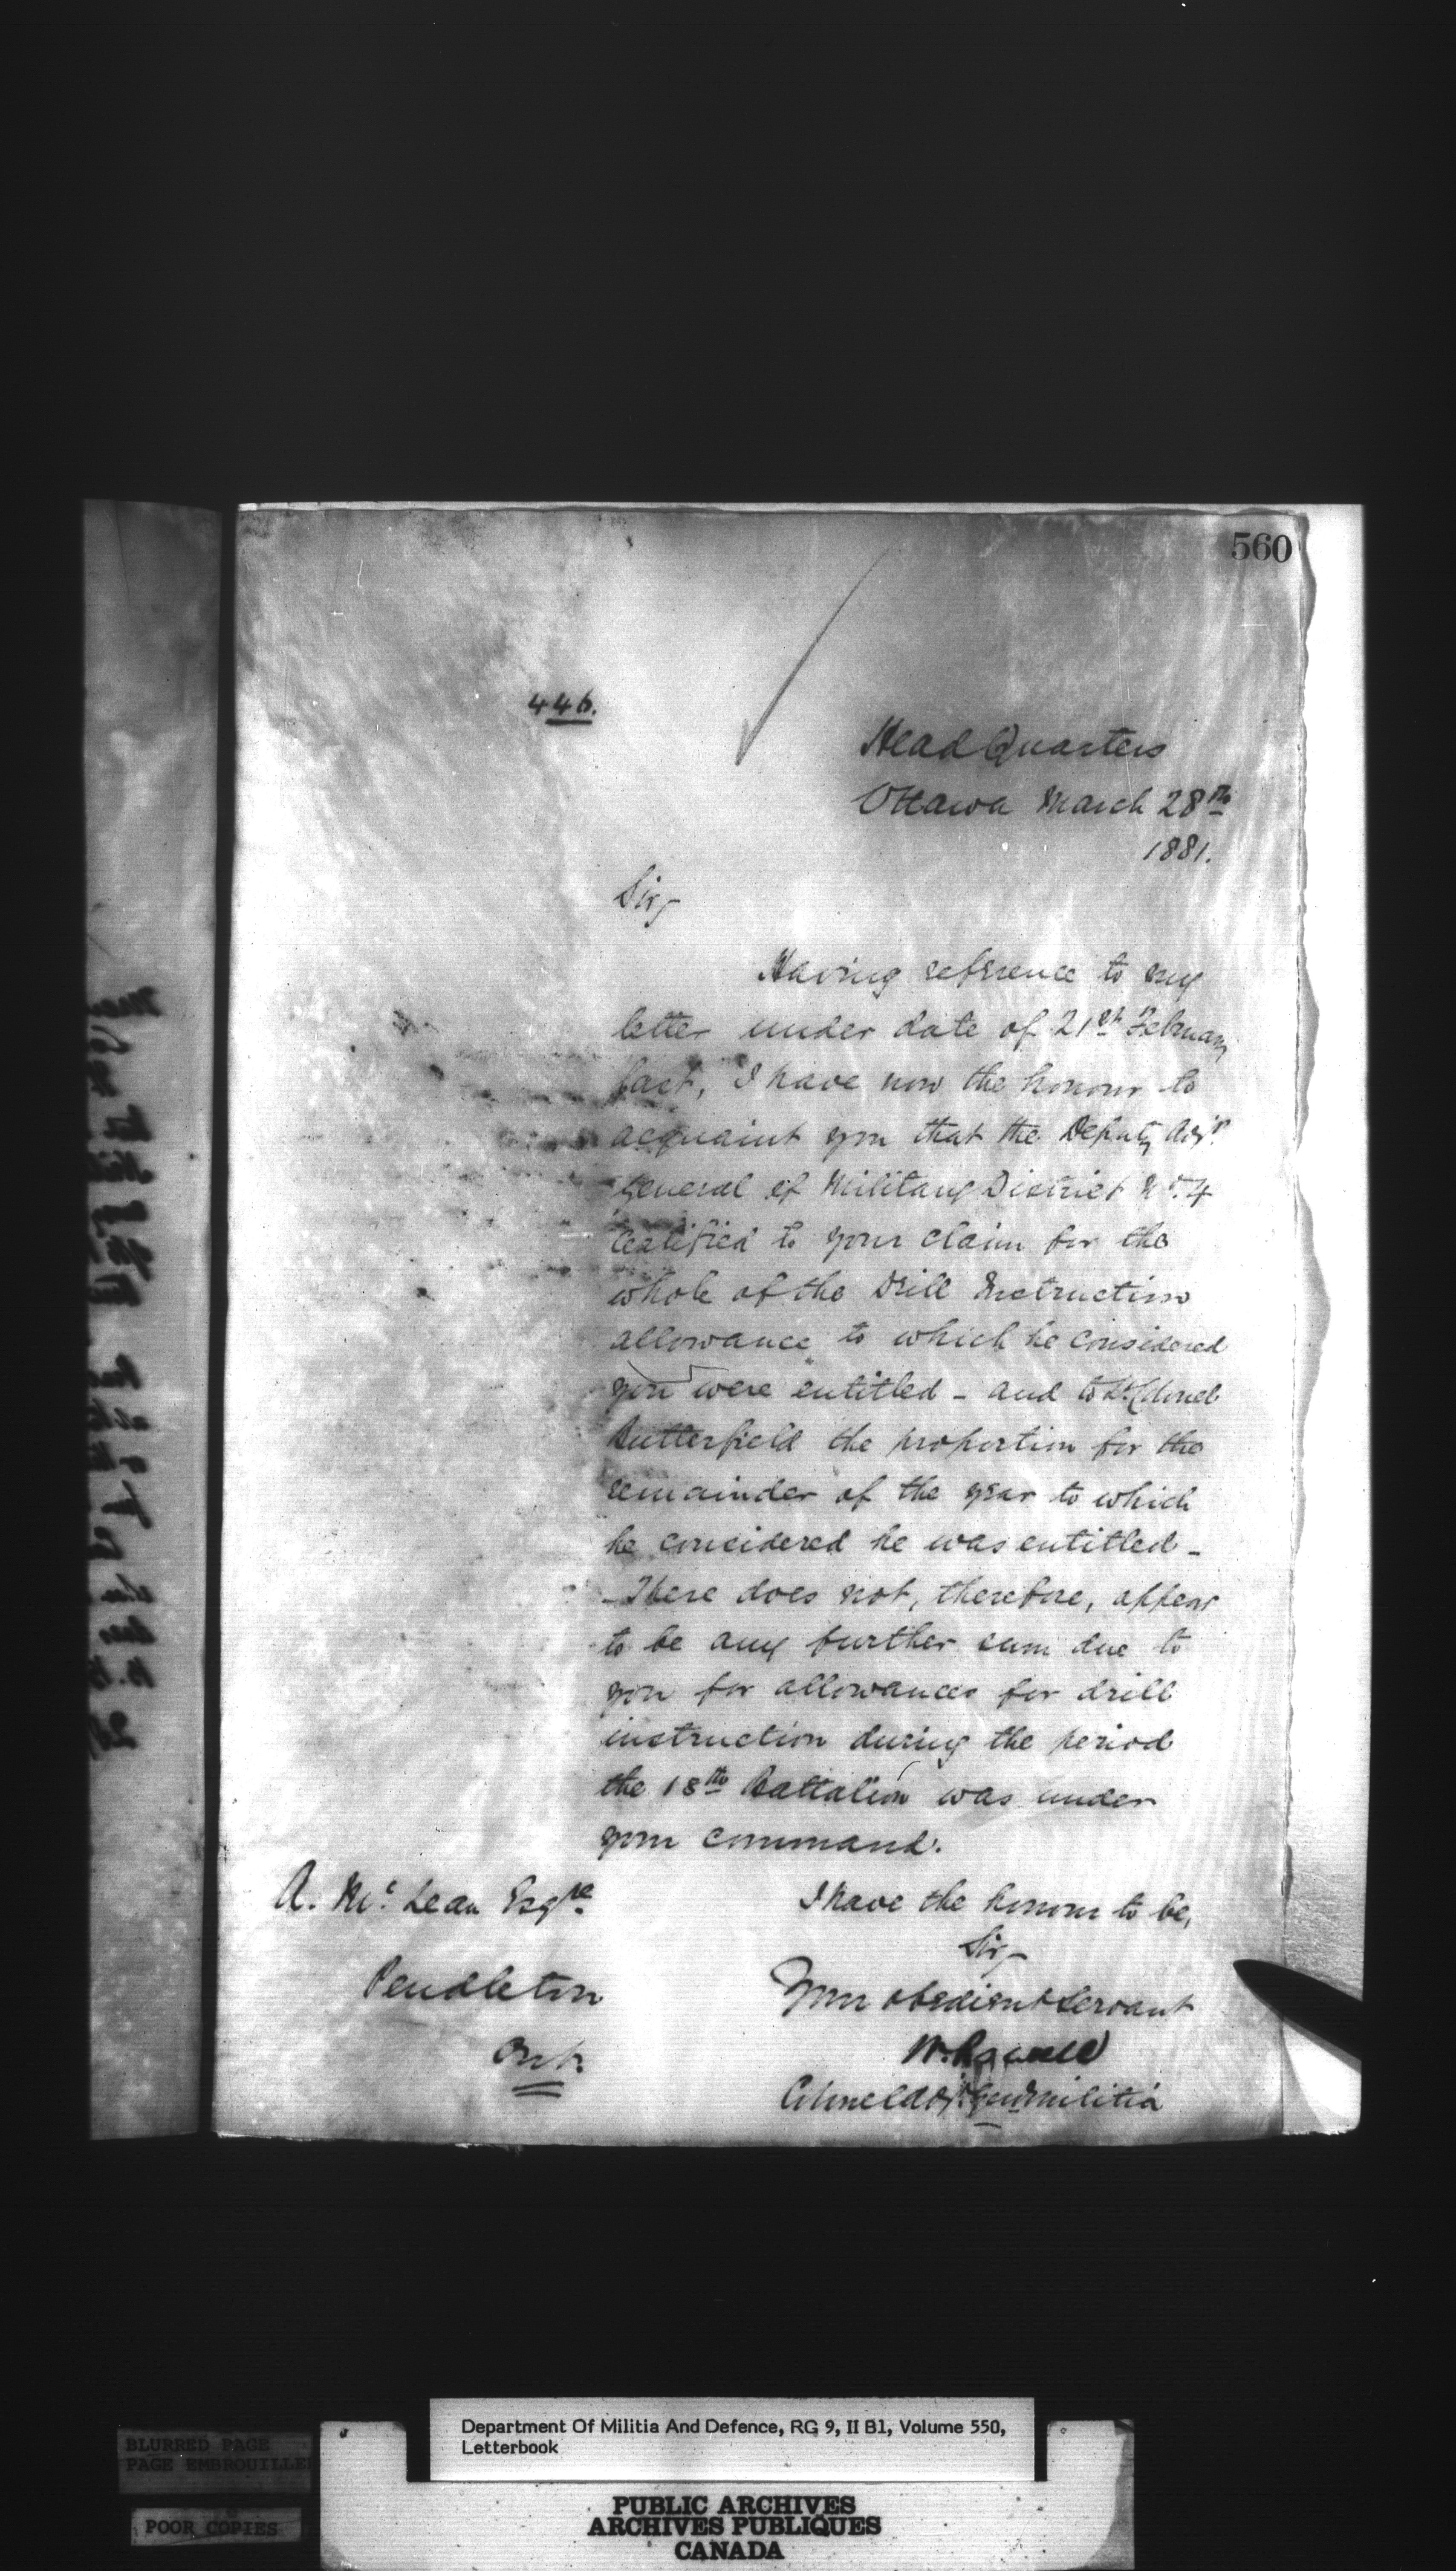 560
446.
Head Quarters
Ottawa March 28th
1881.
Sir,
Having reference to my
letter under date of 21st February
last, I have now the honour to
acquaint you that the Deputy Adjt.
General of Military District No. 4
certified to your claim for the
whole of the Drill Instruction
allowance to which he considered
you were entitled - and to Lt. Colonel
Butterfield the proportion for the
remainder of the year to which
he considered he was entitled -
- There does not, therefore, appear
to be any further sum due to
you for allowances for drill
instruction during the period
the 18th Battalion was under
your command.
A. Mc. Lean Esqre.
Pendleton
Ont.
I have the honour to be,
Sir,
Your obedient Servant
W. Powell
Colonel Adjt. Genl. Militia
Department Of Militia And Defence, RG 9, II B1, Volume 550,
Letterbook
BLURRED PAGE
PAGE EMBROUILLEE
POOR COPIES
PUBLIC ARCHIVES
ARCHIVES PUBLIQUES
CANADA